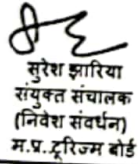 सुरेश झारिया
संयुक्त संचालक
(निवेश संवर्धन)
म.प्र.टूरिज्म बोर्ड